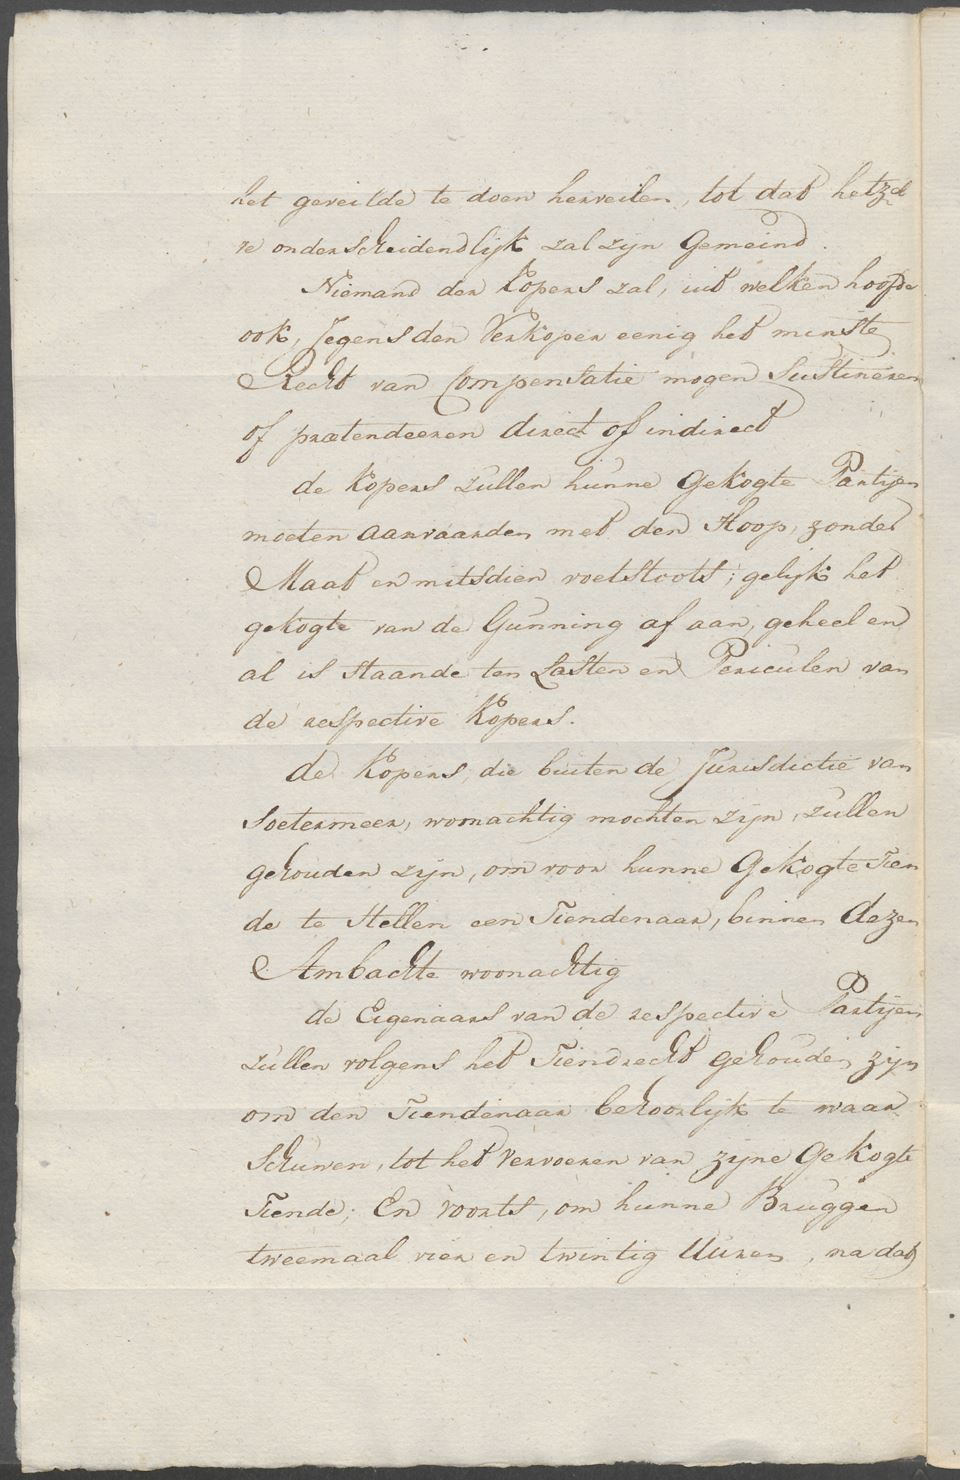 het geveilde te doen herveilen, tot dat hetzel
ve onderscheidendlijk zal zijn Gemeind.
Niemand der Kopers zal, uit welken hoofde
ook, Jegens den Verkoper eenig het minste
Recht van Compensatie mogen Sustineren
of prætendeeren direct of indirect
de Kopers zullen hunne Gekogte Partijen
moeten aanvaarden met den Hoop, zonder
Maat en mitsdien voetstoots; gelijk het
gekogte van de Gunning af aan, geheel en
al is staande ten Lasten en Periculen van
de respective Kopers.
de Kopers, die buiten de Jurisdictie van
Soetermeer, womachtig mochten zijn, zullen
gehouden zijn, om voor hunne Gekogte Tien
de te stellen een Tiendenaar, binnen dezen
Ambachte woonachtig
de Eigenaars van de respective Partijen
zullen volgens het Tiendrecht gehouden zijn
om den Tiendenaar behoorlijk te waar
schuwen, tot het Vervoeren van zijne Gekogte
Tiende; En voorts, om hunne Bruggen
tweemaal vier en twintig Uuren, na dat